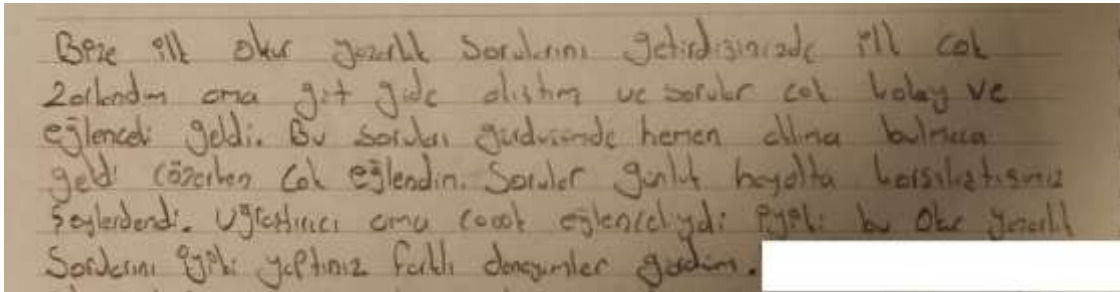 Bize ilk okur yazarlık sorularını getirdiğinizde ilk çok
zorlandım ama git gide alıştım ve sorular çok kolay ve
eğlenceli geldi. Bu soruları gördüğümde hemen aklıma bulmaca
geldi çözerken çok eğlendim. Sorular günlük hayatta karşılaştığımız
şeylerdendi. Uğraştırıcı ama çoook eğlenceliydi iyiki bu okur yazarlık
Sorularını iyiki yaptınız farklı deneyimler gördüm.